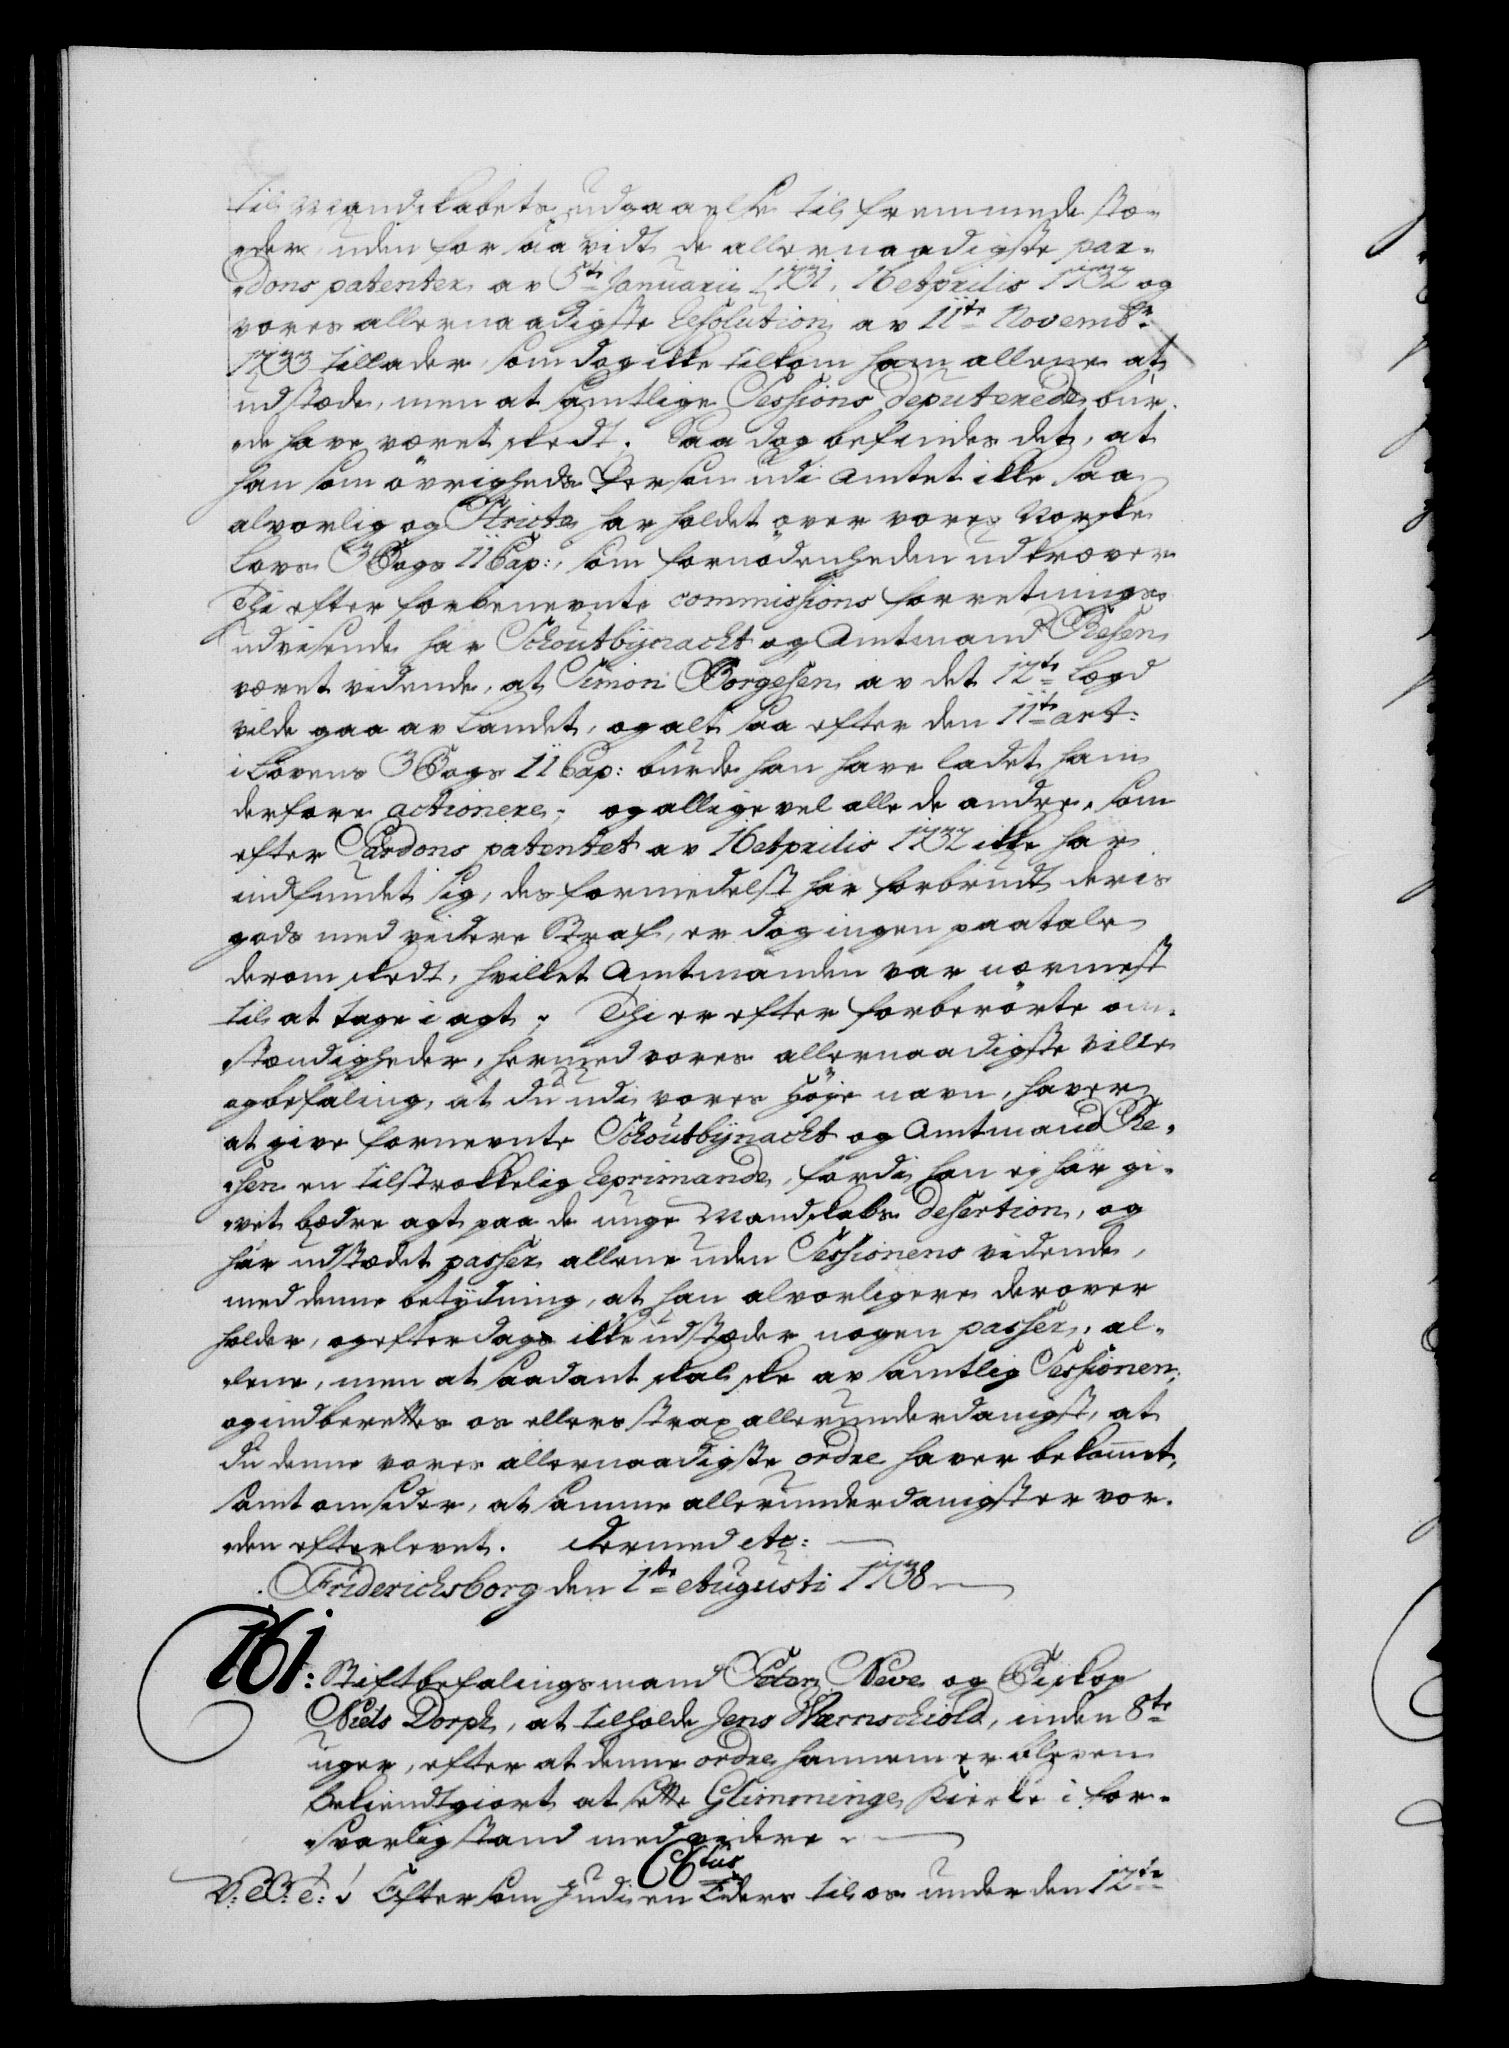 til Mandskabets udgaaelse til fremmede stæ-
der uden for saa vidt de allernaadigste par-
dons patenter av 5te Januarii 1731, 16 Aprilis 1732 og
vores allernaadigste Resolution av 11te Novembr
1733 tillader, som dog ikke tilkom ham allene at
udstæde, men at samtlige Sessions deputerede bur-
de have været skedt. Saa dog befindes det, at
han som øvrigheds Person udi Amtet ikke saa
alvorlig og Stricte har holdet over vores Norske
Lovs 3 Bogs 11 Cap:, som fornødenheden udkræver
Thi efter forbenevnte commissions forretnings
udvisende har Schoutbynacht og Amtmand Resen
været vidende, at Simon Borgesen av det 12te Lægd
vilde gaa av Landet, og alt saa efter den 11te art:
i Lovens 3 Bogs 11 Cap: burde han have ladet ham
derfore actionere; og alligevel alle de andre, som
efter Pardons patentet av 16 Aprilis 1732 ikke har
indfundet sig, des formedelst har forbrudt deris
gods med videre Straf, er dog ingen paatale
derom skedt, hvilket Amtmanden var nærmest
til at tage i agt; Thi er efter forberørte om-
stændigheder, hermed vores allernaadigste ville
og befaling, at du udi vores høje navn, haver
at give fornevnte Schoutbynacht og Amtmand Re-
sen en tilstrækkelig Reprimande, fordi han ej har gi-
vet bædre agt paa de unge Mandskabs desertion, og
har udstædet passer allene uden Sessionens vidende,
med denne betydning, at han alvorligere derover
holder, og efterdags ikke udstæder nogen passer, al-
lene, men at saadant skal ske av samtlig Sessionen,
og indberettes os ellers strax allerunderdanigst, at
du denne vores allernaadigste ordre haver bekommet,
samt omsider, at samme allerunderdanigst er vor-
den efterlevet. Dermed etc:
Friderichsborg den 1te Augusti 1738
161: Stiftbefalingsmand Peter Neve og Biskop
Niels Dorph, at tilholde Jens Wernschiold, inden 8te
uger, efter at denne ordre hannem er bleven
bekiendtgiort at sette Glimminge Kierke i for-
svarlig stand med videre.
C6tus
V: G: T: Eftersom I udi en Eders til os under den 12te